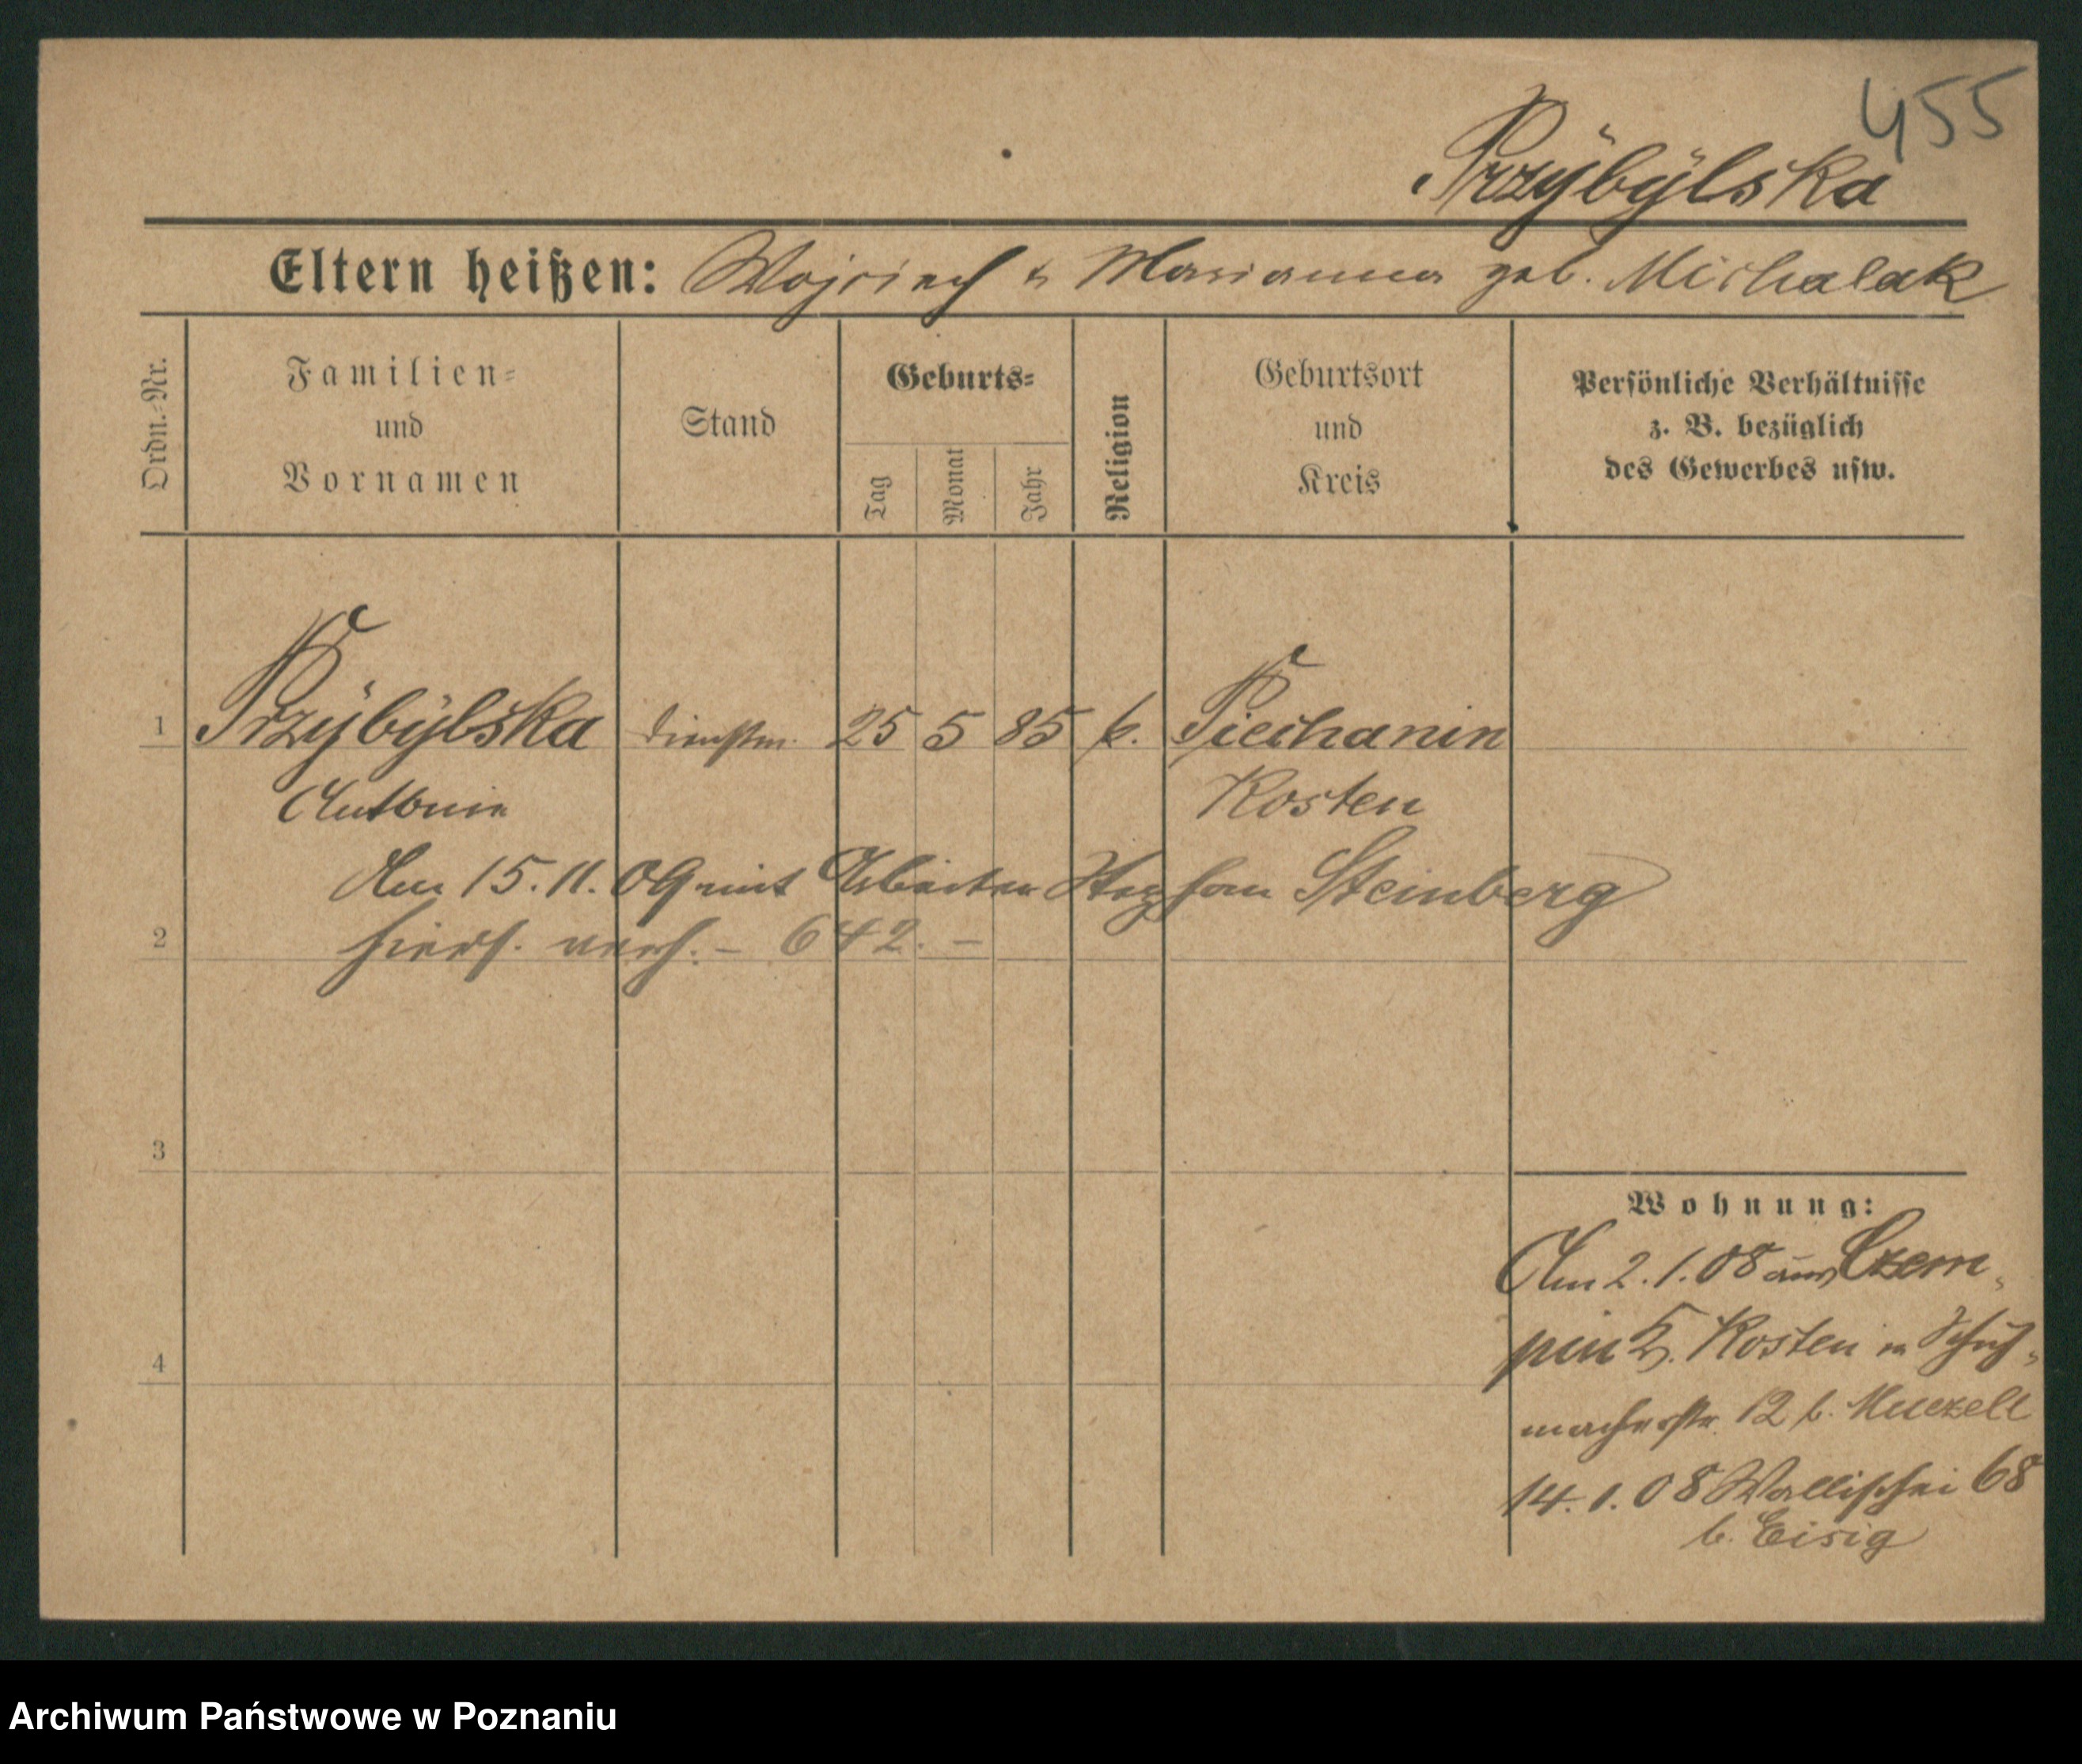 455
Przÿbÿlska
Eltern heißen: Wojciech u Marianna geb. Michalak
Ordn.-Nr.
Familien-
und
Vornamen
Stand
Geburts-
Tag
Monat
Jahr
Religion
Geburtsort
und
Kreis
Persönliche Verhältnisse
z. B. bezüglich
des Gewerbes usw.
1 Przÿbÿlska Dienstm. 25 5 85 k. Piechanin
Antonie Kosten
Am 15.11.09 mit Arbeiter Stephan Steinberg
2 hiers. verh. – 642. –
3
Wohnung:
Am 2.1.08 aus Czem-
pin K. Kosten n Schuh-
4
macherstr. 12 b. Muezell
14.1.08 Wallischei 68
b. Eisig
Archiwum Państwowe w Poznaniu